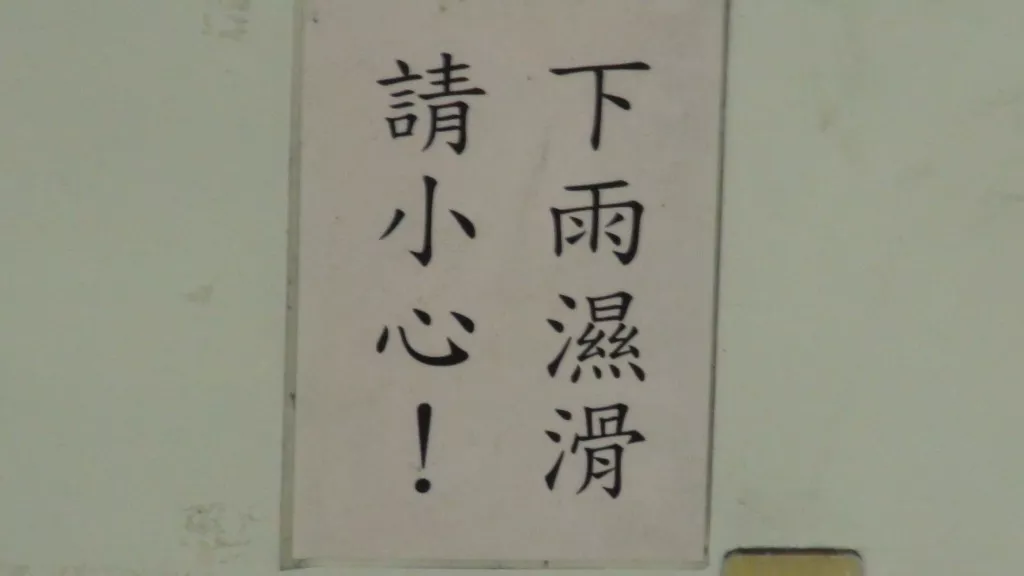 下雨濕滑
請小心！